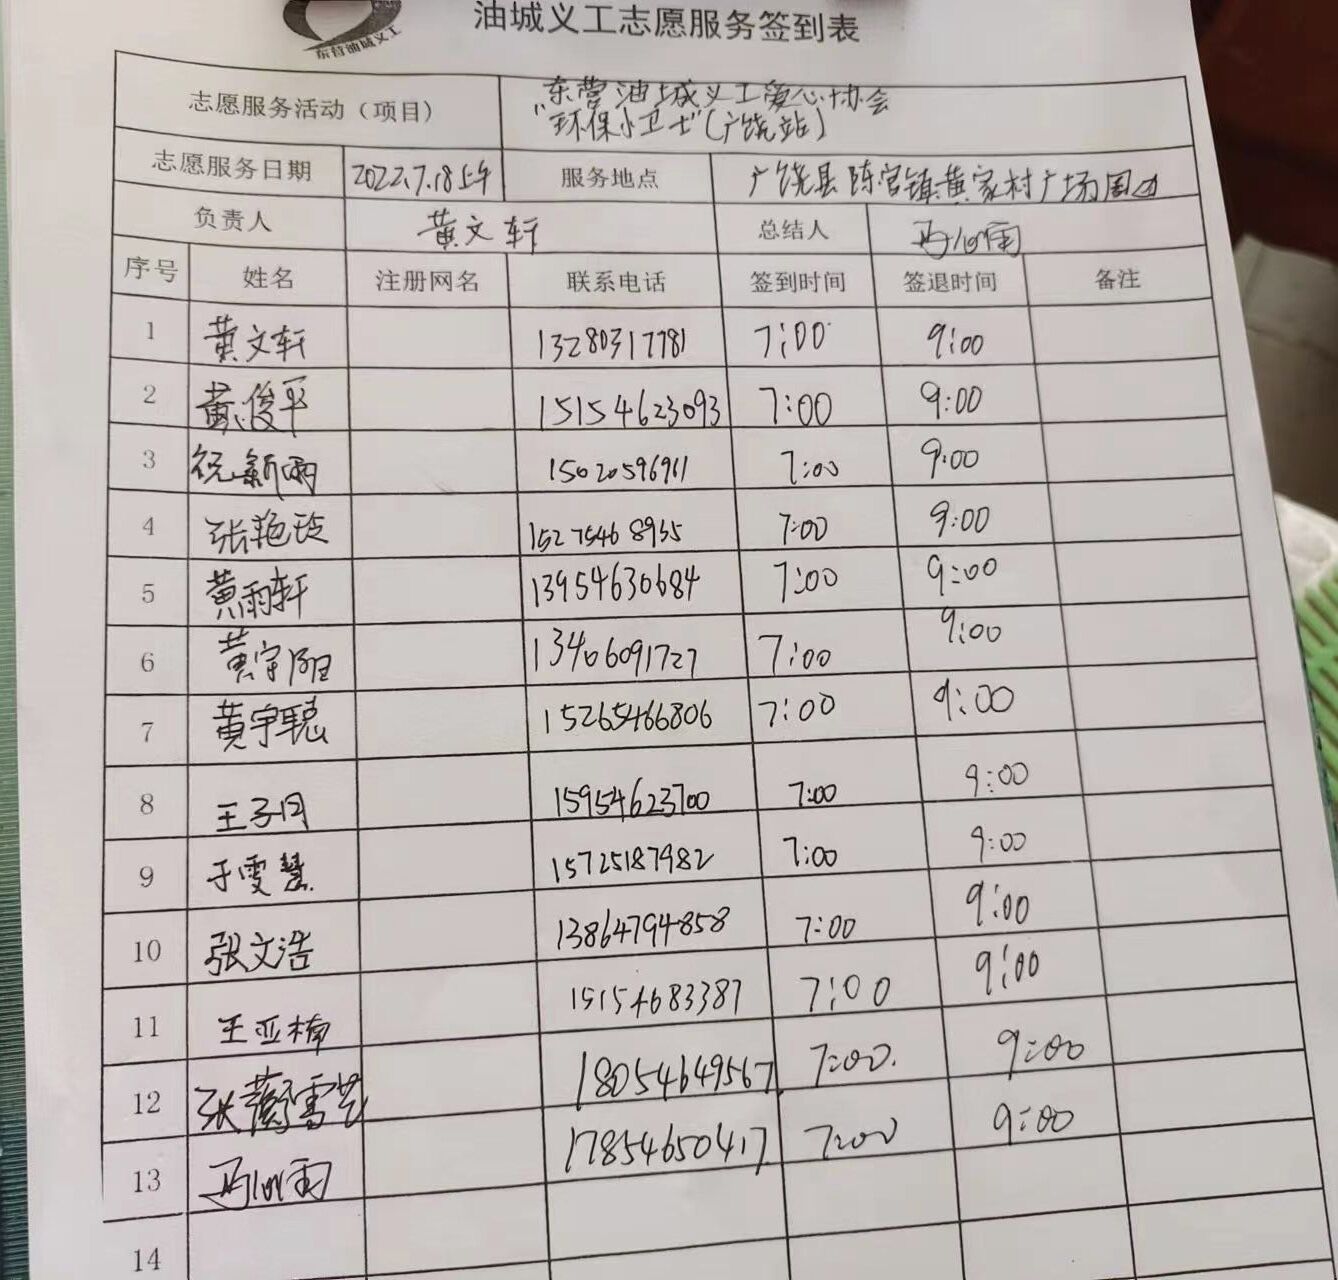 东营油城义工
油城义工志愿服务签到表
志愿服务活动（项目） 东营油城义工爱心协会
"环保小卫士"(广饶站)
志愿服务日期 2022.7.18上午 服务地点 广饶县陈官镇黄家村广场周边
负责人 黄文轩 总结人
序号 姓名 注册网名 联系电话 签到时间 签退时间 备注
1 黄文轩 13280317781 7:00 9:00
2 黄俊平 15154623093 7:00 9:00
3 祝新雨 15020596911 7:00 9:00
4 张艳玲 15275468955 7:00 9:00
5 黄雨轩 13954630684 7:00 9:00
6 黄宇阳 13406091727 7:00 9:00
7 黄宇聪 15265466806 7:00 9:00
8 王子月 15954623700 7:00 9:00
9 于雯慧 15725187982 7:00 9:00
10 张文浩 13864794858 7:00 9:00
11 王亚楠 15154683387 7:00 9:00
12 18054649567 7:00 9:00
13 17854650417 7:00 9:00
14